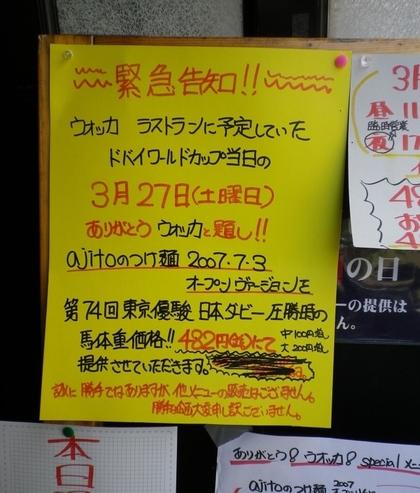 緊急告知!!
ウオッカ ラストランに予定していた
ドバイワールドカップ当日の
3月27日(土曜日)
ありがとう ウオッカと題し!!
ajitoのつけ麺 2007.7.3
オープンヴァージョンを
第74回東京優駿 日本ダービー圧勝時の
馬体重価格!! 482円(税)にて
中100円増し
大200円増し
提供させていただきます。
誠に勝手ではありますが、他メニューの販売はございません。
勝手な企画大変申し訳ございません。
3月
昼 11
臨時営業
夜 17
48
の日
の提供は
ん。
本日
ありがとう!ウオッカ! specialメニ
ajitoのつけ麺 2007